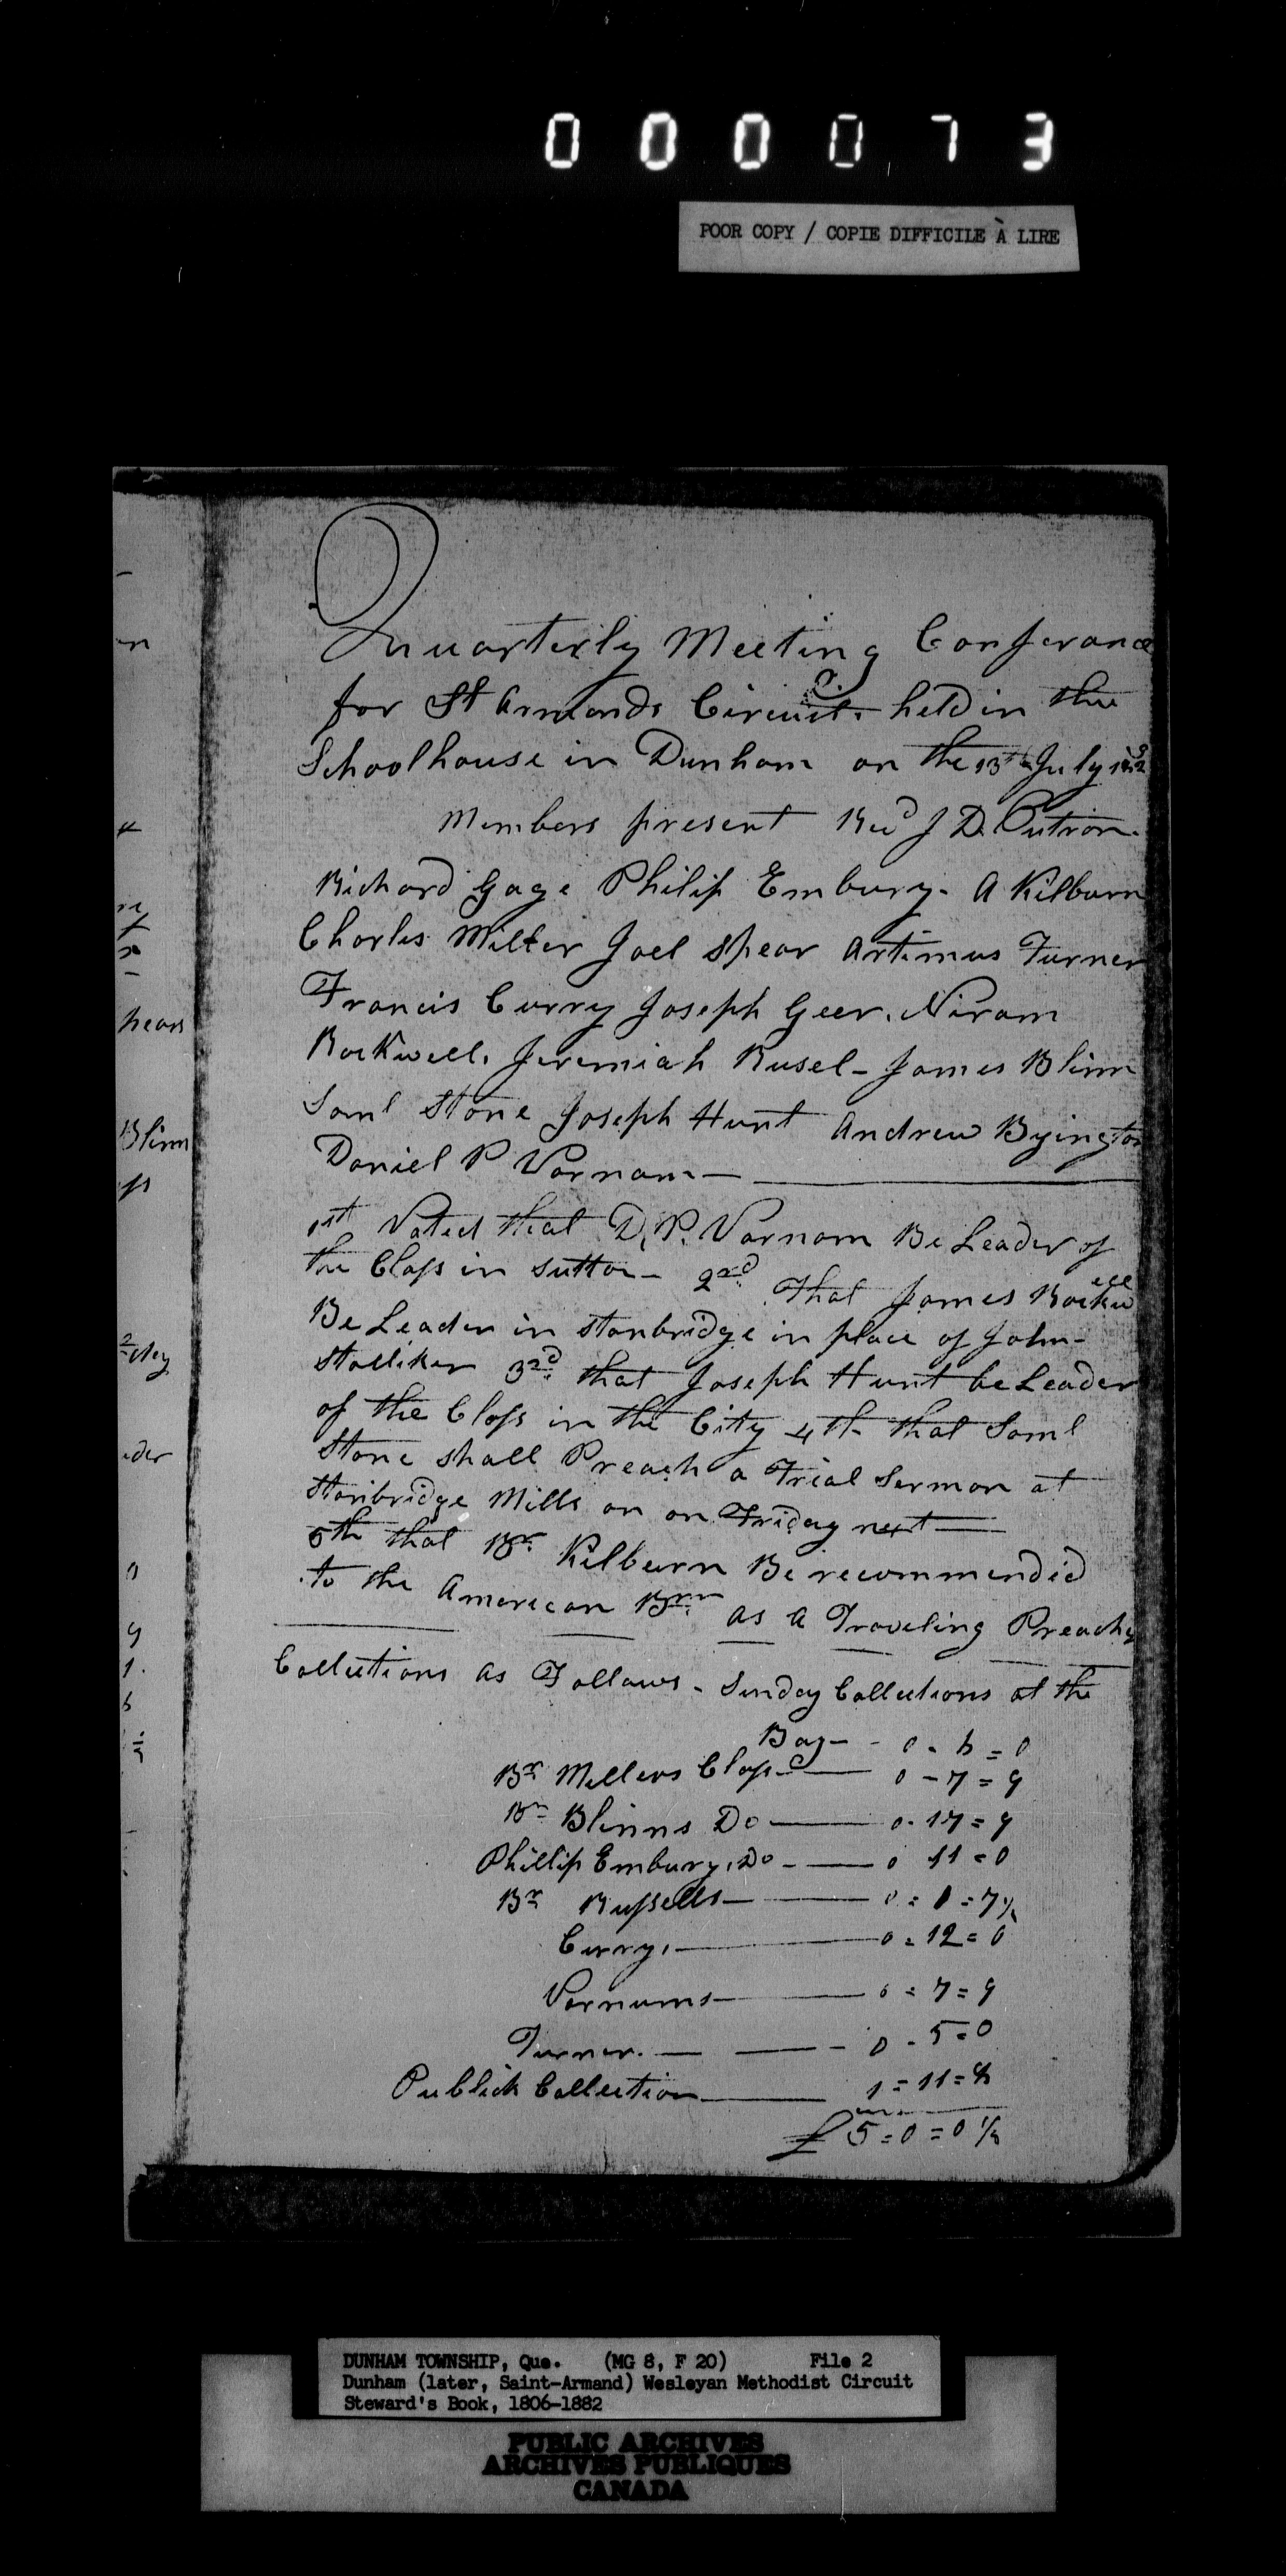 000073
POOR COPY / COPIE DIFFICILE À LIRE
Quuarterly Meeting Conferance
for St Armands Circuit. held in the
Schoolhouse in Dunham on the 13th July
Members present Revd J D. Putron.
Richard Gage Philip Embury. A Kilburn
Charles Miller Joel Spear Artimus Turner
Francis Curry Joseph Geer. Niram
Rockwell. Jeremiah Rusel- James Blinn
Saml Stone Joseph Hunt Andrew Byington
Daniel P Varnam
1st Voted that D. P. Varnam Be Leader of
the Class in Sutton- 2nd That James Rockwell
Be Leader in Stanbridge in place of John-
Stalliker 3rd that Joseph Hunt be Leader
of the Class in the City 4th that Saml
Stone shall Preach a Trial Sermon at
Stanbridge Mills on on Friday next
5th that Br Kilburn Be recommended
to the American Brn as A Traveling Preacher
Collections As Follows. Sunday Collections at the
Bay - 0 - 6 = 0
Br Millers Class 0 - 7 = 9
Br Blinns Do 0 - 17 = 9
Phillip Embury, Do 0 11 = 0
Br Russells 0 = 1 = 7½
Curry, 0 = 12 = 0
Varnums 0 = 7 = 9
Turner. 0 - 5 = 0
Publick Collection 1 = 11 =
£ 5 = 0 = 0 ½
hears
Blinn
DUNHAM TOWNSHIP, Que. (MG 8, F 20) File 2
Dunham (later, Saint-Armand) Wesleyan Methodist Circuit
Steward's Book, 1806-1882
PUBLIC ARCHIVES
ARCHIVES PUBLIQUES
CANADA